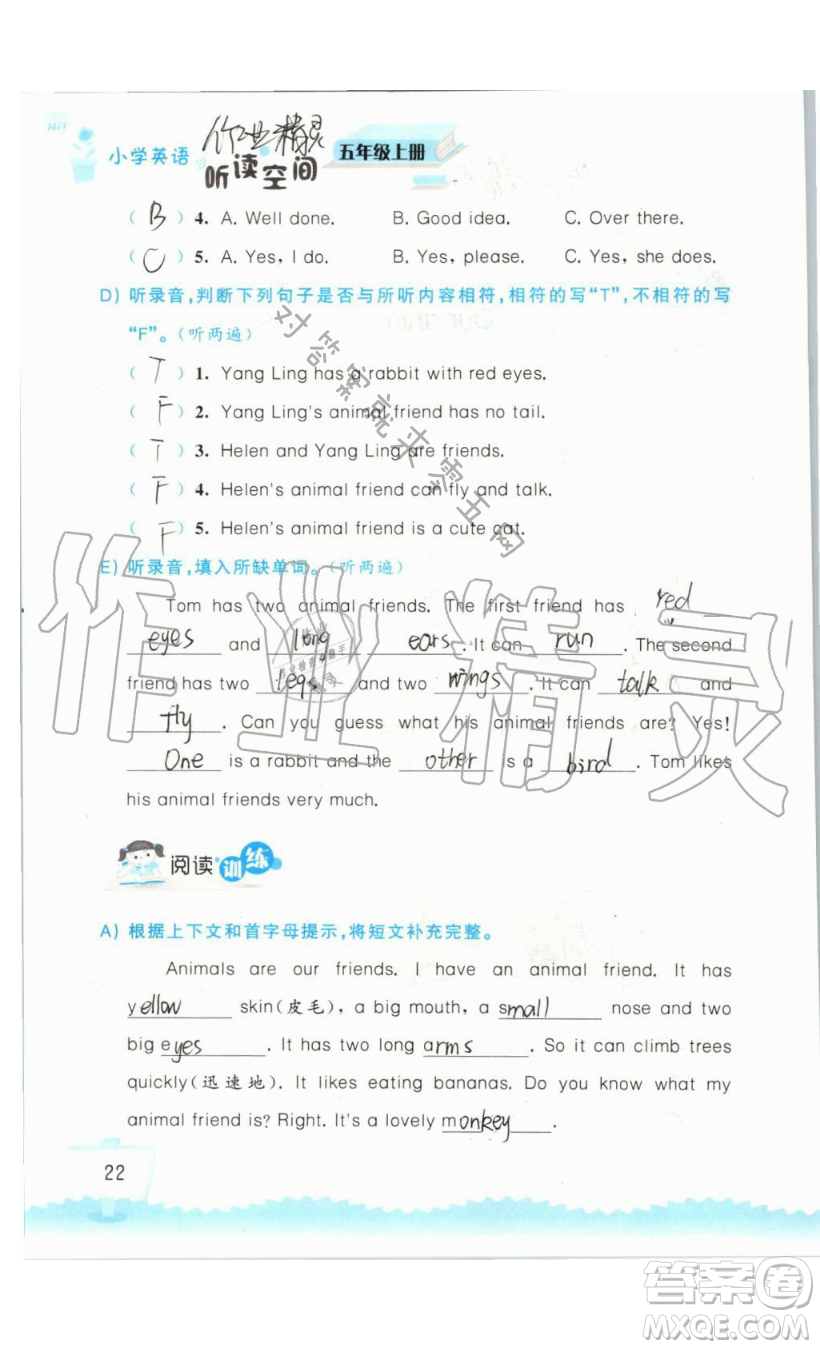 Hi!
小学英语
作业精灵
听读空间
五年级上册
( B ) 4. A. Well done. B. Good idea. C. Over there.
( C ) 5. A. Yes, I do. B. Yes, please. C. Yes, she does.
D) 听录音,判断下列句子是否与所听内容相符,相符的写“T”,不相符的写
“F”。(听两遍)
( T ) 1. Yang Ling has a rabbit with red eyes.
( F ) 2. Yang Ling's animal friend has no tail.
( T ) 3. Helen and Yang Ling are friends.
( F ) 4. Helen's animal friend can fly and talk.
( F ) 5. Helen's animal friend is a cute cat.
对答案就来零五网
E) 听录音,填入所缺单词。(听两遍)
Tom has two animal friends. The first friend has red
eyes and long ears. It can run. The second
friend has two legs and two wings. It can talk and
fly. Can you guess what his animal friends are? Yes!
One is a rabbit and the other is a bird. Tom likes
his animal friends very much.
作业精灵
阅读训练
A) 根据上下文和首字母提示,将短文补充完整。
Animals are our friends. I have an animal friend. It has
yellow skin(皮毛), a big mouth, a small nose and two
big eyes. It has two long arms. So it can climb trees
quickly(迅速地). It likes eating bananas. Do you know what my
animal friend is? Right. It's a lovely monkey.
22
答案卷
MXQE.COM